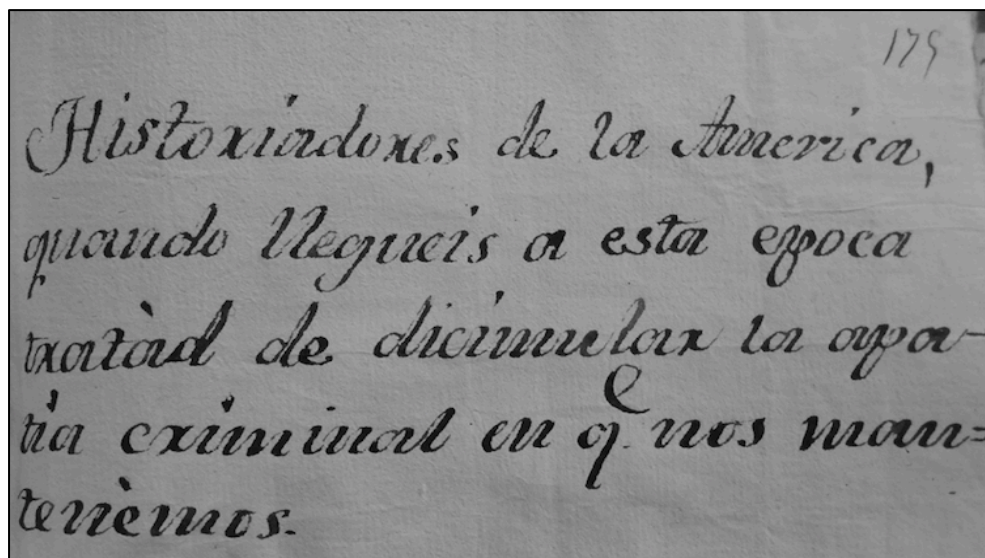 175
Historiadores de la America,
quando llegueis a esta epoca
tratàd de dicimular la apa-
tia criminal en q.e nos man=
tenèmos.